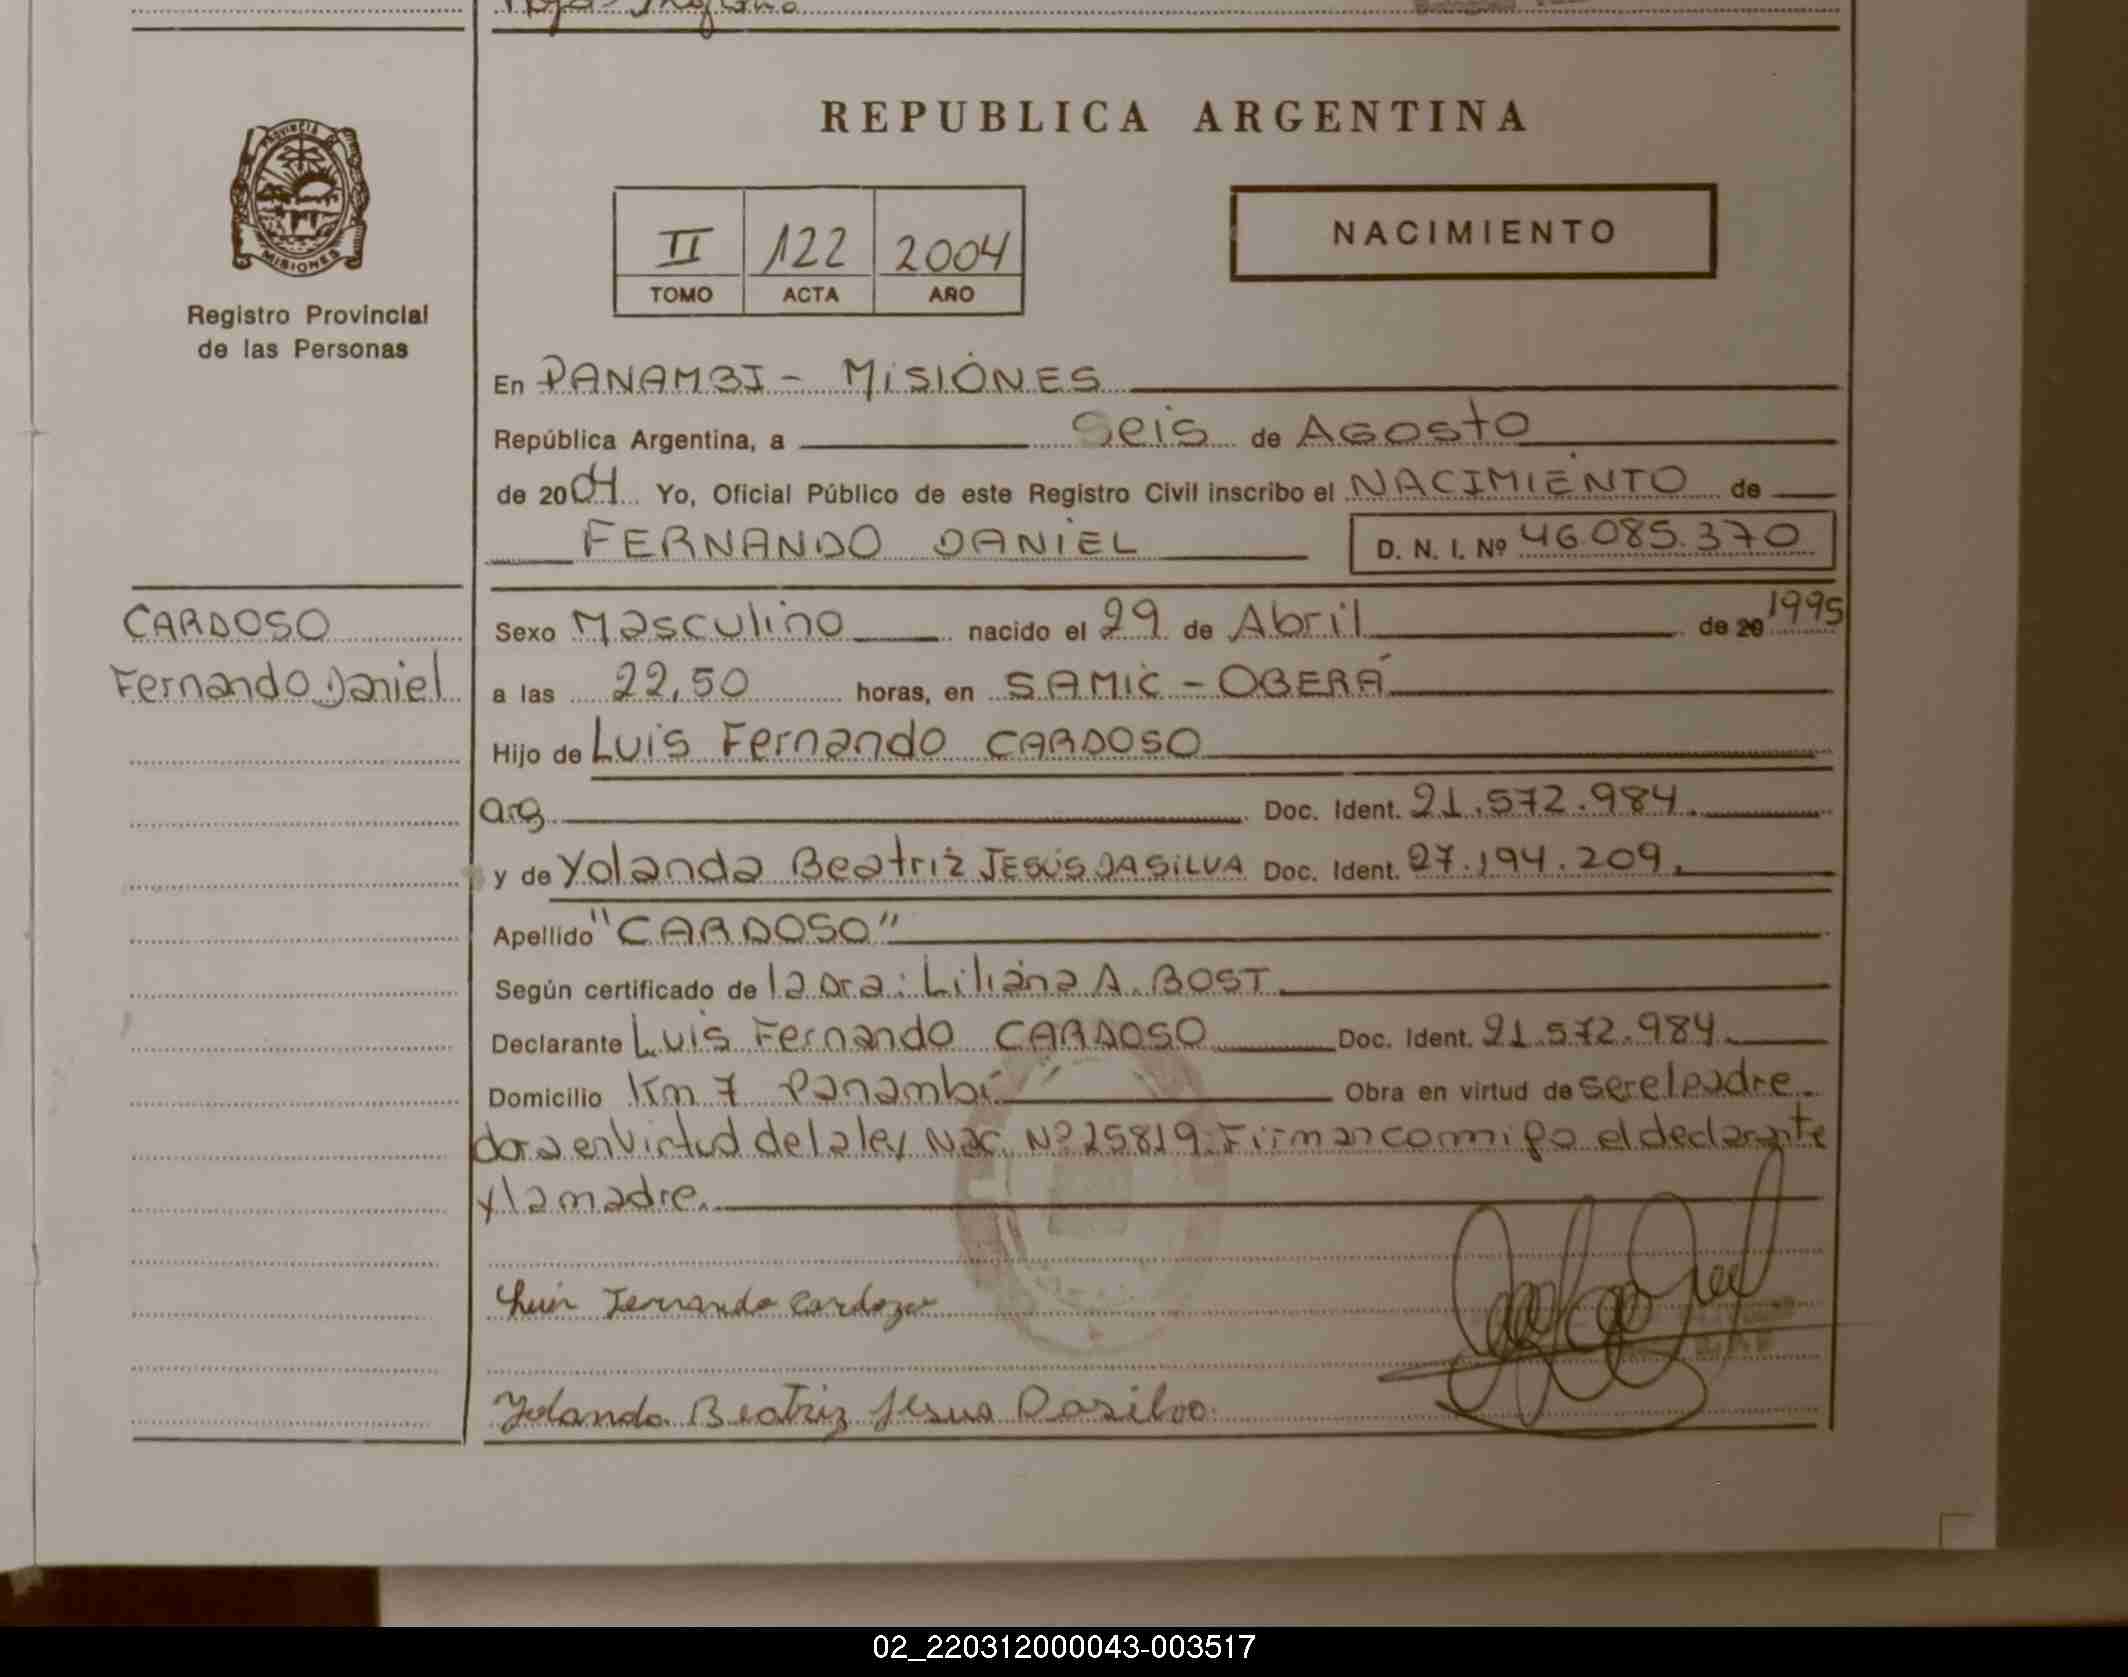 REPUBLICA ARGENTINA
PROVINCIA DE
MISIONES
Registro Provincial
de las Personas
II 122 2004
TOMO ACTA AÑO
NACIMIENTO
En PANAMBI - MISIONES
República Argentina, a seis de AGOSTO
de 2004 Yo, Oficial Público de este Registro Civil inscribo el NACIMIENTO de
FERNANDO DANIEL D. N. I. Nº 46.085.370
CARDOSO
Fernando Daniel
Sexo Masculino nacido el 29 de Abril de 20 1995
a las 22,50 horas, en SAMIC - OBERÁ
Hijo de Luis Fernando CARDOSO
arg. Doc. Ident. 21.572.984.
y de Yolanda Beatriz JESÚS DASILVA Doc. Ident. 27.194.209.
Apellido "CARDOSO"
Según certificado de la Dra: Liliana A. BOST
Declarante Luis Fernando CARDOSO Doc. Ident. 21.572.984.
Domicilio Km 7 Panambí Obra en virtud de ser el padre.
dora en virtud de la ley Nac. Nº 25819. Firman conmigo el declarante
y la madre.
Luis Fernando Cardozo
Yolanda Beatriz Jesus Dasilva
02_220312000043-003517